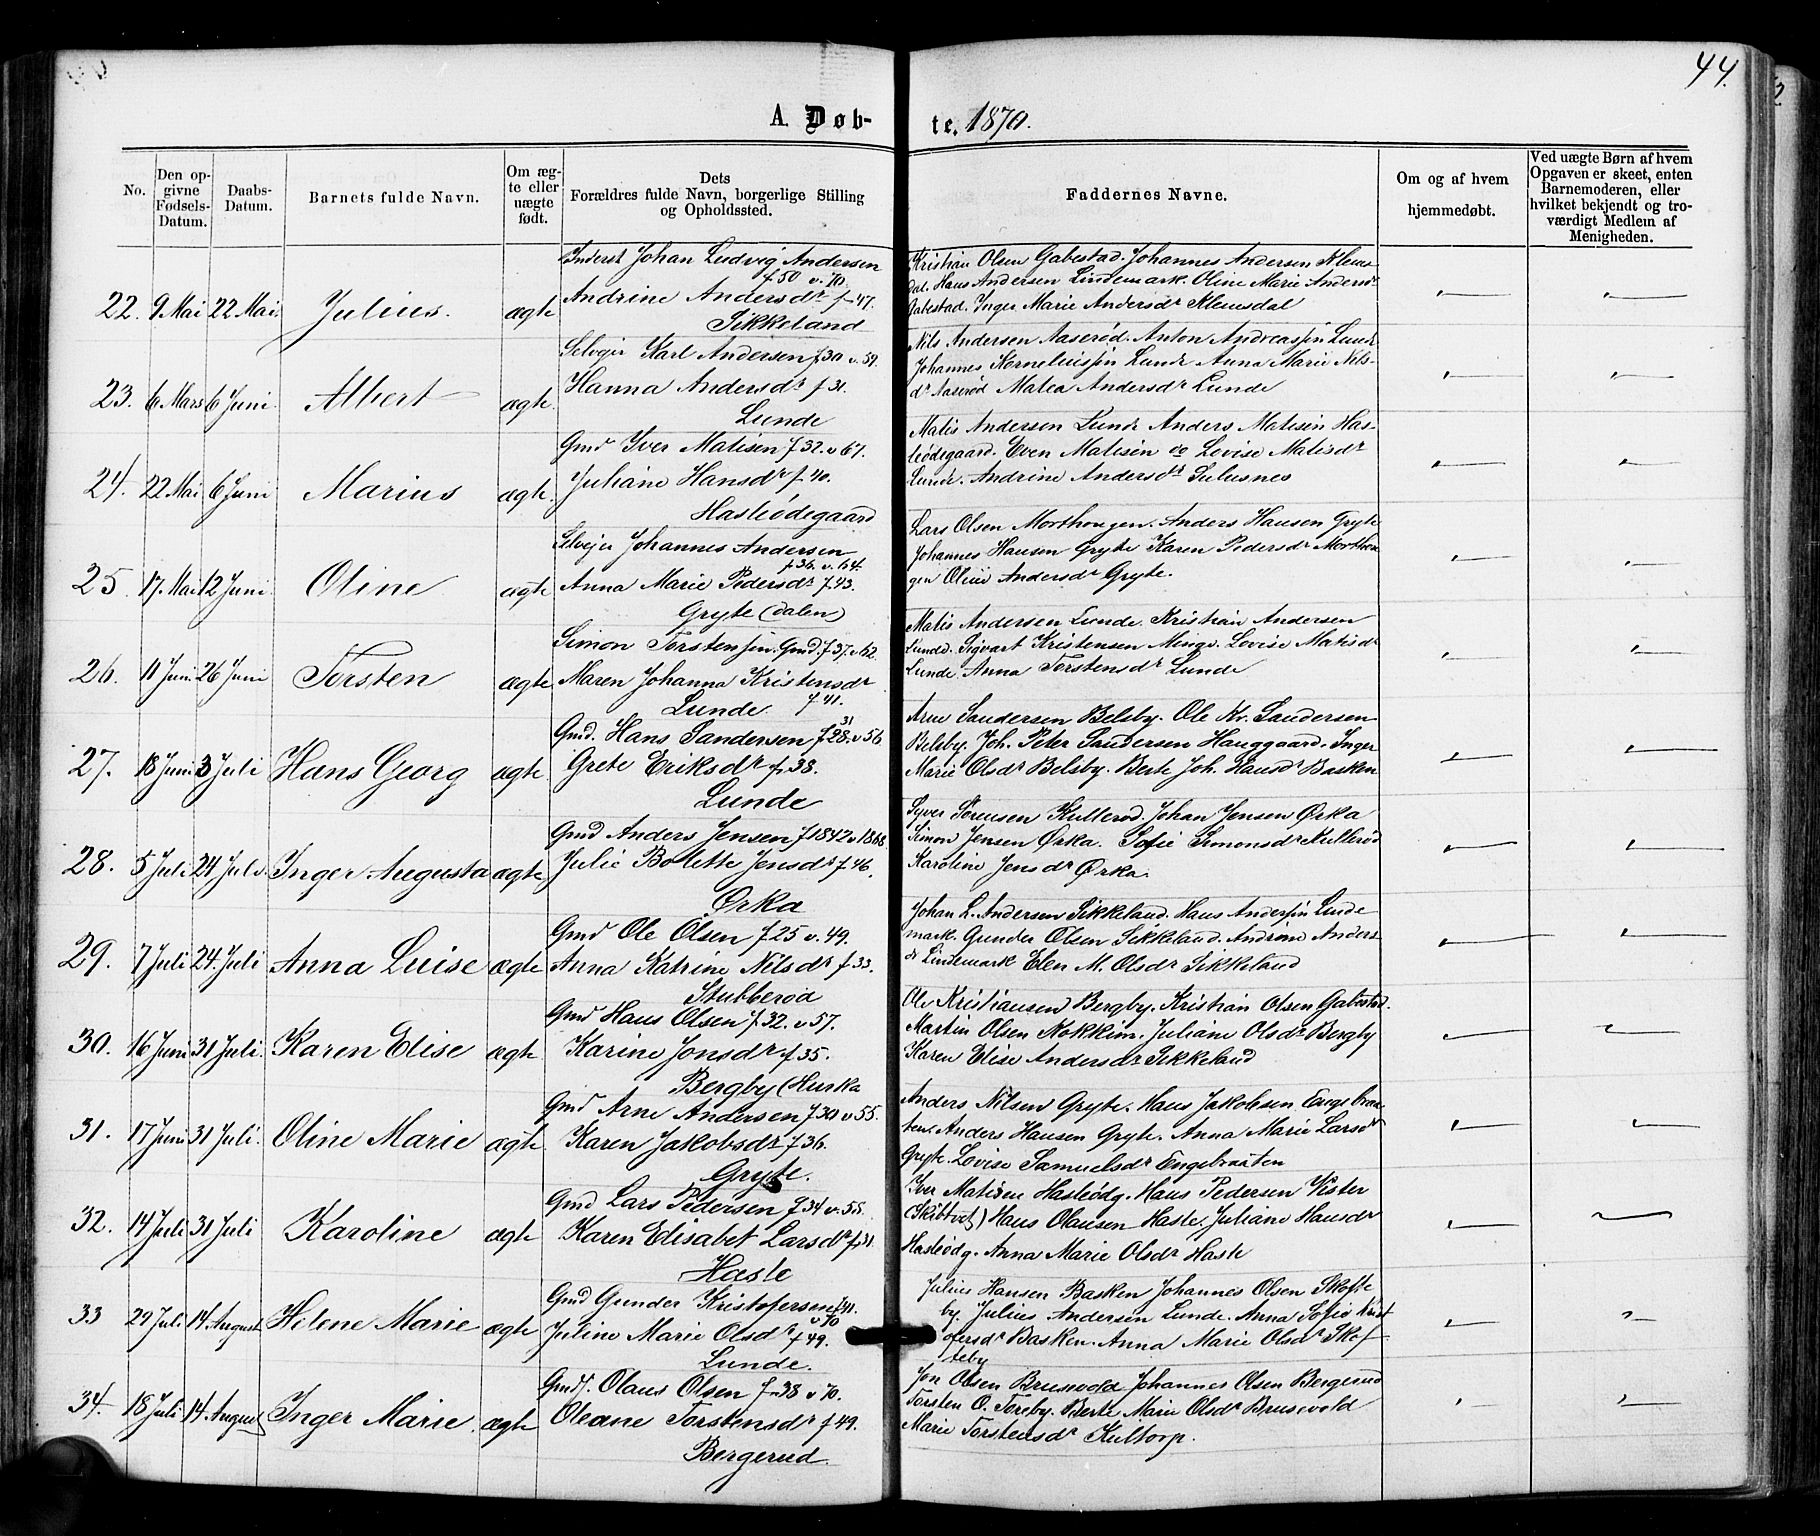 44.
A. Døb-
te. 1870.
No.
Den op-
givne
Fødsels-
Datum.
Daabs-
Datum.
Barnets fulde Navn.
Om æg-
te eller
uægte
født.
Dets
Forældres fulde Navn, borgerlige Stilling
og Opholdssted.
Faddernes Navne.
Om og af hvem
hjemmedøbt.
Ved uægte Børn af hvem
Opgaven er skeet, enten
Barnemoderen, eller
hvilket bekjendt og tro-
værdigt Medlem af
Menigheden.
22. 9 Mai 22 Mai. Julius. ægte
Inderst Johan Ludvig Andersen
f 50 v. 70.
Andrine Andersdr f 47.
Sikkeland
Kristian Olsen Gabestad. Johannes Andersen Klems
dal. Hans Andersen Lindemark. Oline Marie Andersdr
Gabestad. Inger Marie Andersdr Klemsdal
23. 6 Mars 6 Juni. Albert ægte.
Selvejer Karl Andersen f 30 v. 59.
Hanna Andersdr f 31.
Lunde
Nils Andersen Aaserød. Anton Andreassen Lunde
Johannes Korneliussen Lunde Anna Marie Nils-
dr Aaserød Matea Andersdr Lunde
24. 22 Mai 6 Juni Marius ægte.
Gmd Yver Matisen f 32. v 67.
Juliane Hansdr f 40.
Hasleødegaard
Matis Andersen Lunde Anders Matisen Has-
leødegaard. Even Matisen og Lovise Matisdr
Lunde. Andrine Andersdr
25. 17. Mai 12 Juni. Oline ægte
Selvejer Johannes Andersen
f 36. v. 64.
Anna Marie Pedersdr f 43.
Gryte (dalen)
Lars Olsen Morthougen. Anders Hansen Gryte
Johannes Hansen Gryte Karen Pedersdr Morthou
gen Oline Andersdr Gryte.
26. 11 Juni. 26 Juni Torsten ægte
Simon Torstensen. Gmd. f 37. v 62.
Maren Johanna Kristensdr
Lunde. f 41.
Matis Andersen Lunde. Kristian Andersen
Lunde. Sigvart Kristensen Minge. Lovise Matisdr
Lunde. Anna Torstensdr Lunde
27. 18 Juni 3 Juli Hans Georg ægte.
31
Gmd. Hans Sandersen f 28. v 56.
Grete Eriksdr f 38.
Lunde
Arne Sandersen Belsby. Ole Kr. Sandersen
Belsby. Joh. Peter Sandersen Hauggaard. Inger
Marie Olsdr Belsby. Berte Joh. Hansdr Basken
28. 5 Juli 24 Juli. Inger Augusta ægte.
Gmd Anders Jensen f 1842 v 1868.
Julie Bolette Jensdr f 46.
Ørka
Syver Sørensen Kullerød. Johan Jensen Ørka
Simon Jensen Ørka. Sofie Simonsdr Kullerød
Karoline Jensdr Ørka.
29. 7 Juli 24. Juli Anna Luise ægte
Gmd Ole Olsen f 25 v. 49.
Anna Katrine Nilsdr f 33.
Stubberød
Johan L. Andersen Sikkeland. Hans Andersen Linde
mark. Gunder Olsen Sikkeland. Andrine Anders-
dr Lindemark Elen M. Olsdr Sikkeland
30. 16 Juni 31 Juli. Karen Elise ægte
Gmd Hans Olsen f 32. v 57.
Karine Jonsdr f 35.
Bergby (Huska
Ole Kristiansen Bergby. Kristian Olsen Gabestad.
Martin Olsen Nokkim. Juliane Olsdr Bergby
Karen Elise Andersdr Sikkeland
31. 17 Juni 31 Juli. Oline Marie ægte.
Gmd Arne Andersen f 30 v 55.
Karen Jakobsdr f 36.
Gryte.
Anders Nilsen Gryte. Hans Jakobsen Engebraa-
ten. Anders Hansen Gryte. Anna Marie Larsdr
Gryte. Lovise Samuelsdr Engebraaten
32. 14 Juli 31 Juli Karoline ægte
Gmd Lars Pedersen f 34 v. 55.
Karen Elisabet Larsdr f 31.
Hasle
Yver Matisen Hasleødg. Hans Pedersen Vister
(Skibtvet) Hans Olausen Hasle. Juliane Hansdr
Hasleødg. Anna Marie Olsdr Hasle
33 29 Juli. 14 August Helene Marie ægte
Gmd Gunder Kristofersen f 41.
v 70
Juline Marie Olsdr f 49.
Lunde.
Julius Hansen Basken Johannes Olsen Skofte
by. Julius Andersen Lunde. Anna Sofie Krist
ofersdr Basken. Anna Marie Olsdr Skof-
teby
34. 18 Juli. 14 August Inger Marie. ægte
Gmds. Olaus Olsen f 38 v 70.
Oleane Torstensdr f 49.
Bergerud.
Jon Olsen Brusevold Johannes Olsen Bergerud
Torsten O. Toreby. Berte Marie Olsdr Brusevold
Marie Torstensdr Kultorp.